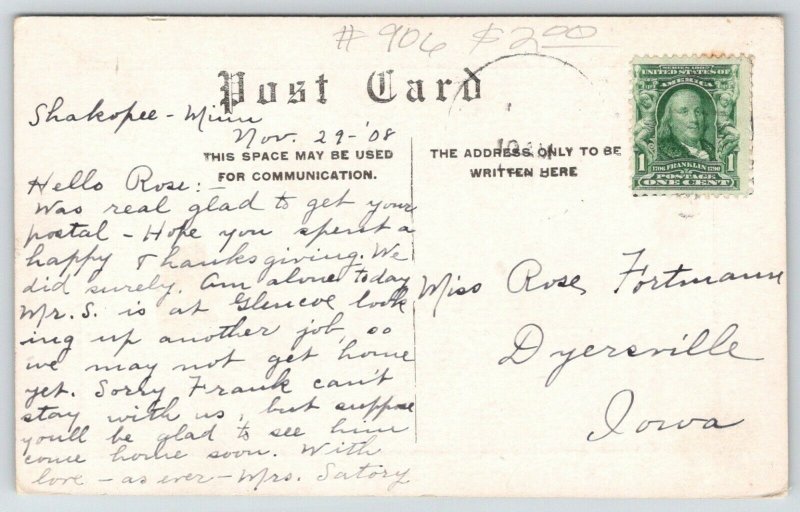 # 906 $2.00
Post Card
Shakopee - Minn
Nov. 29-'08
THIS SPACE MAY BE USED
FOR COMMUNICATION.
Hello Rose: -
Was real glad to get your
postal - Hope you spent a
happy Thanksgiving. We
did surely. Am alone today
Mr. S. is at Glencoe look
ing up another job, so
we may not get home
yet. Sorry Frank can't
stay with us, but suppose
you'll be glad to see him
come home soon. With
love - as ever - Mrs. Satory
THE ADDRESS ONLY TO BE
WRITTEN HERE
SERIES 1902
UNITED STATES OF
AMERICA
1706 FRANKLIN 1790
POSTAGE
1 ONE CENT 1
Miss Rose Fortmann
Dyersville
Iowa